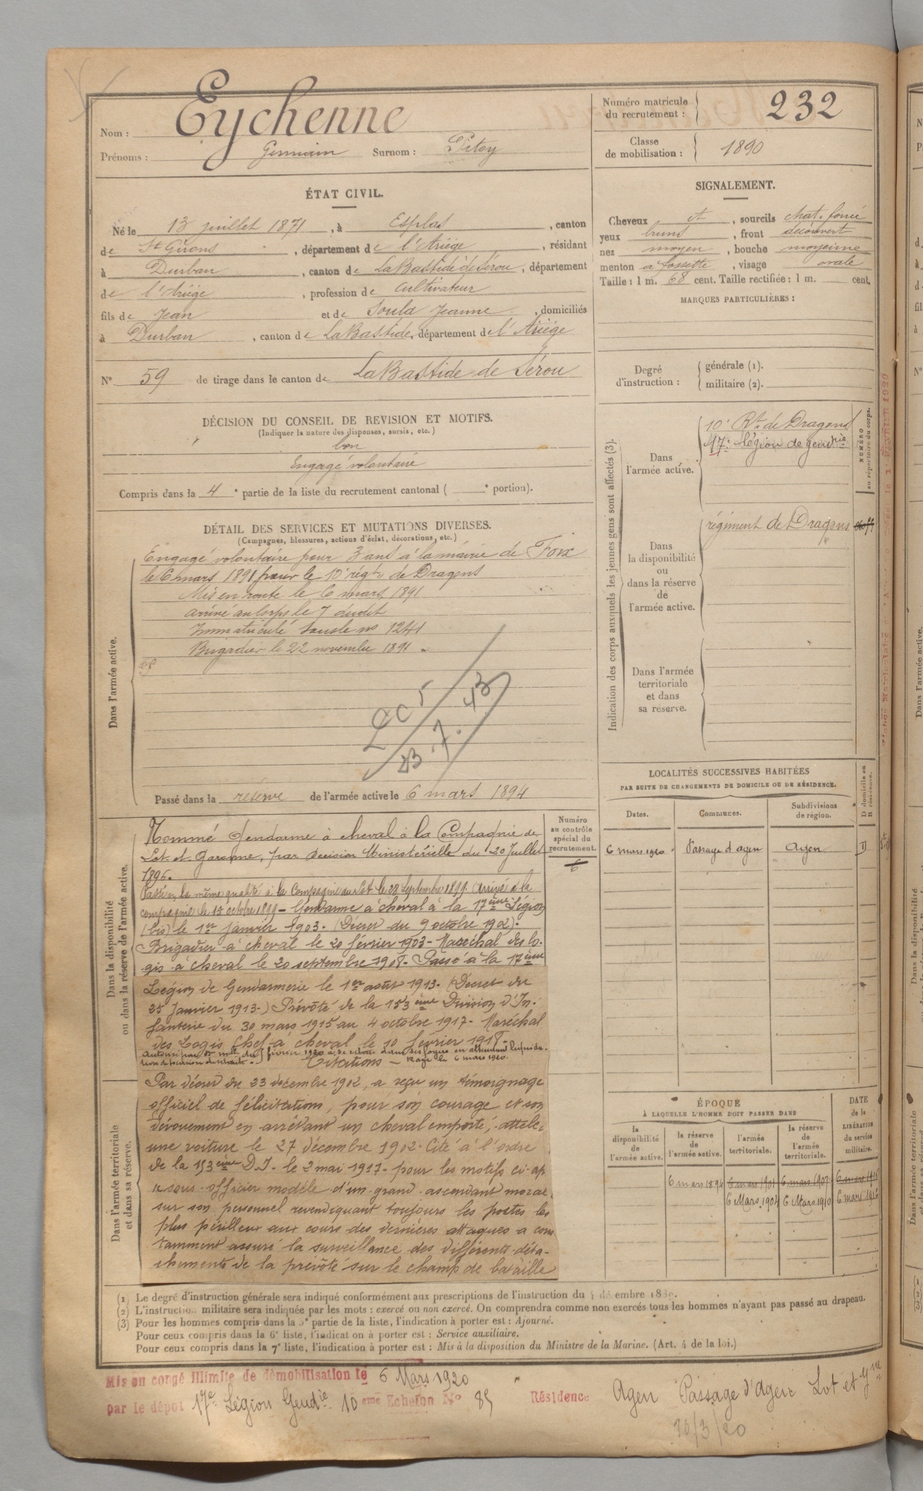 Nom : Eychenne
Prénoms : Germain Surnom : Pitoy
Numéro matricule du recrutement : 232
Classe de mobilisation : 1890
ÉTAT CIVIL.
Né le 13 juillet 1871, à Esplas, canton
de St Girons, département de l'Ariège, résidant
à Durban, canton de LaBastide de Sérou, département
de l'Ariège, profession de Cultivateur
fils de Jean et de Soula Jeanne, domiciliés
à Durban, canton de LaBastide, département de l'Ariège
N° 59 de tirage dans le canton de LaBastide de Sérou
SIGNALEMENT.
Cheveux et, sourcils chat. foncé
yeux bruns, front découvert
nez moyen, bouche moyenne
menton à fossette, visage ovale
Taille : 1 m. 68 cent. Taille rectifiée : 1 m. cent.
MARQUES PARTICULIÈRES :
Degré d'instruction : générale (1).
militaire (2).
DÉCISION DU CONSEIL DE REVISION ET MOTIFS.
(Indiquer la nature des dispenses, sursis, etc.)
bon
Engagé volontaire
Compris dans la 4e partie de la liste du recrutement cantonal ( e portion).
DÉTAIL DES SERVICES ET MUTATIONS DIVERSES.
(Campagnes, blessures, actions d'éclat, décorations, etc.)
Dans l'armée active.
Engagé volontaire pour 3 ans à la mairie de Foix
le 6 mars 1891 pour le 10e régt de Dragons
Mis en route le 6 mars 1891
arrivé au corps le 7 dudit
Immatriculé sous le no 1241
Brigadier le 22 novembre 1891.
23.7.43
Passé dans la réserve de l'armée active le 6 mars 1894
Indication des corps auxquels les jeunes gens sont affectés (3).
Dans l'armée active.
10e Rt de Dragons
17e légion de Gendrie
Dans la disponibilité ou dans la réserve de l'armée active.
régiment de Dragons
Dans l'armée territoriale et dans sa réserve.
LOCALITÉS SUCCESSIVES HABITÉES
PAR SUITE DE CHANGEMENTS DE DOMICILE OU DE RÉSIDENCE.
Dates. Communes. Subdivisions de région. D domicile ou R résidence.
6 mars 1920 Passage d'agen Agen D
Dans la disponibilité ou dans la réserve de l'armée active.
Numéro au contrôle spécial du recrutement.
Nommé Gendarme à cheval à la Compagnie de
Lot et Garonne, par décision Ministérielle du 20 Juillet
1896.
Passé en la même qualité à la Compagnie du Lot le 28 Septembre 1899. Arrivé à la
compagnie le 13 octobre 1899 - Gendarme à cheval à la 17ème Légion
(bis) le 1er janvier 1903. (Décret du 9 octobre 1902).
Brigadier à cheval le 20 février 1903 - Maréchal des lo-
gis à cheval le 20 septembre 1908. Passé à la 17ème
Légion de Gendarmerie le 1er août 1913. (Décret du
25 Janvier 1913.) Prévôté de la 153ème Division d'In-
fanterie du 30 mars 1915 au 4 octobre 1917. Maréchal
des Logis Chef à cheval le 10 février 1918.
Citations -
Dans l'armée territoriale et dans sa réserve.
Par décret du 23 décembre 1902, a reçu un témoignage
officiel de félicitations, pour son courage et son
dévouement en arrêtant un cheval emporté, attelé
une voiture le 27 décembre 1902. Cité à l'ordre
de la 153ème D.I. le 2 mai 1917 - pour les motifs ci-ap
"sous-officier modèle d'un grand ascendant moral
sur son personnel revendiquant toujours les postes les
plus périlleux au cours des dernières attaques a cons
tamment assuré la surveillance des différents déta-
chements de la prévôté sur le champ de bataille
ÉPOQUE
À LAQUELLE L'HOMME DOIT PASSER DANS
la disponibilité de l'armée active. la réserve de l'armée active. l'armée territoriale. la réserve de l'armée territoriale. DATE de la LIBÉRATION du service militaire.
6 mars 1894 6 mars 1901 6 mars 1907 6 mars 1916
6 Mars 1904 6 Mars 1910 6 mars 1916
(1) Le degré d'instruction générale sera indiqué conformément aux prescriptions de l'instruction du 4 décembre 1889.
(2) L'instruction militaire sera indiquée par les mots : exercé ou non exercé. On comprendra comme non exercés tous les hommes n'ayant pas passé au drapeau.
(3) Pour les hommes compris dans la 5e partie de la liste, l'indication à porter est : Ajourné.
Pour ceux compris dans la 6e liste, l'indication à porter est : Service auxiliaire.
Pour ceux compris dans la 7e liste, l'indication à porter est : Mis à la disposition du Ministre de la Marine. (Art. 4 de la loi.)
Mis en congé illimité de démobilisation le 6 Mars 1920
par le dépôt 17e Légion Gendie 10eme Echelon N° 85 Résidence Agen Passage d'Agen Lot et Gne
20/3/20